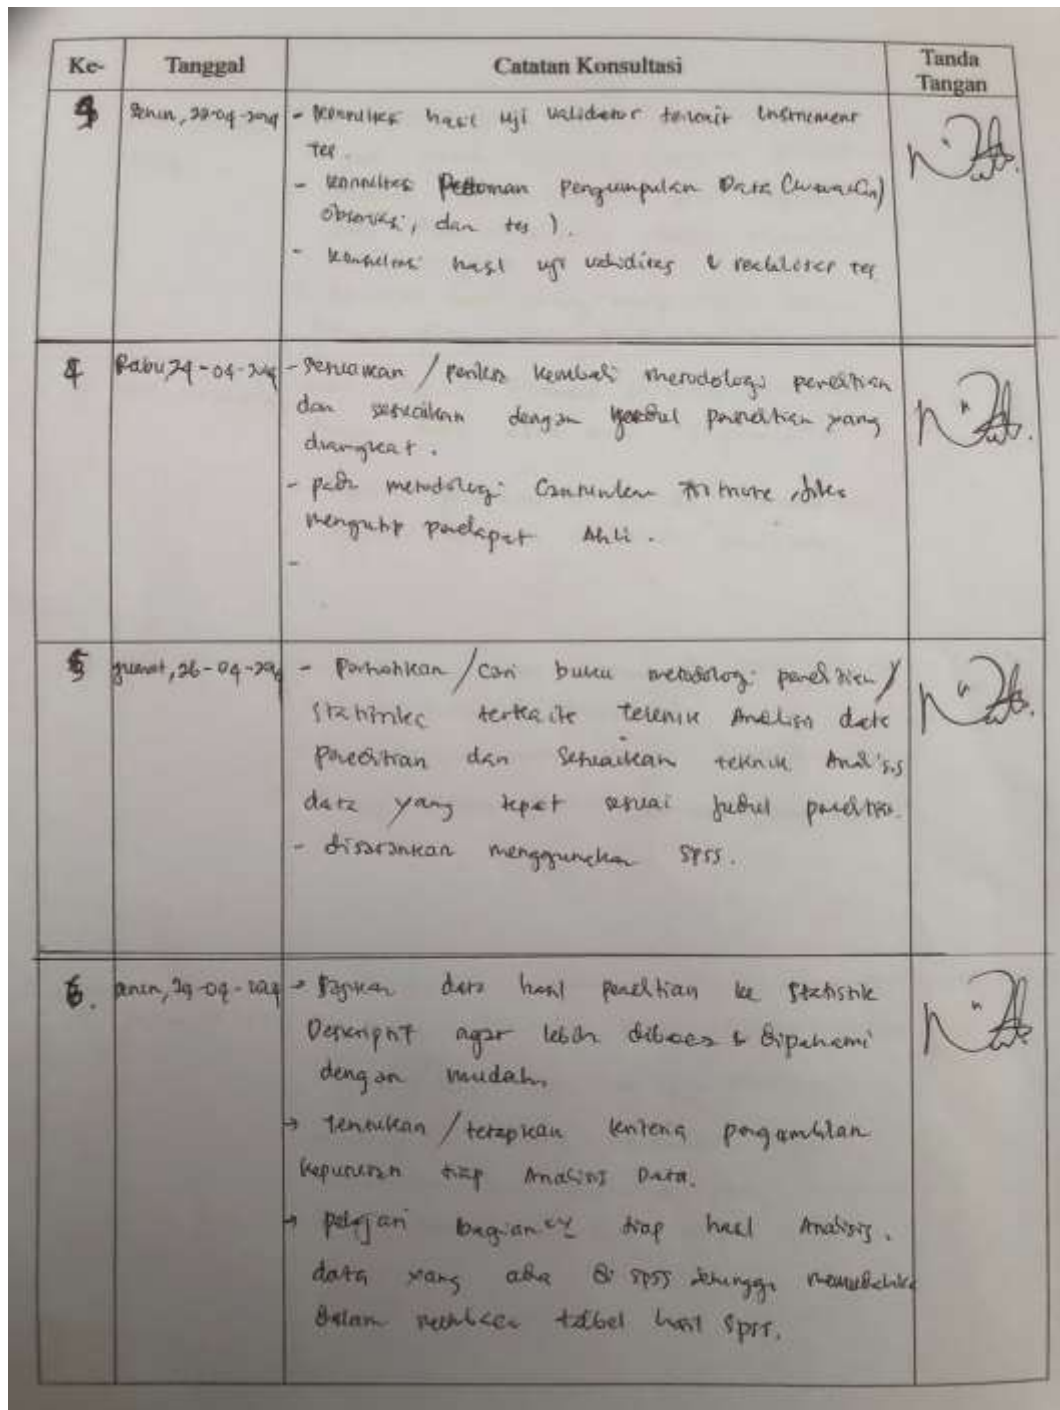 Ke- Tanggal Catatan Konsultasi Tanda Tangan
Senin, 22-04-2024 - hasil uji validator terkait instrument
tes.
- Pedoman Pengumpulan Data (
observasi, dan tes ).
- konsultasi hasil uji validitas & tes
4 Rabu, 24-04-2024 - sesuaikan / periksa kembali metodologi penelitian
dan sesuaikan dengan penelitian yang
diangkat.
- pada metodologi cantumkan , jika
mengutip pendapat Ahli.
-
5 Jum'at, 26-04-2024 - Perhatikan / cari buku metodologi penelitian /
statistika terkait teknik Analisa data
penelitian dan sesuaikan teknik Analisis
data yang tepat sesuai judul penelitian.
- disarankan menggunakan SPSS.
6. Senin, 29-04-2024 → Sajikan data hasil penelitian ke Statistik
Deskriptif agar lebih dibaca & dipahami
dengan mudah.
→ tentukan / tetapkan kriteria pengambilan
keputusan tiap Analisis Data.
→ pelajari bagian tiap hasil Analisis.
data yang ada di SPSS sehingga
dalam membaca tabel hasil SPSS.